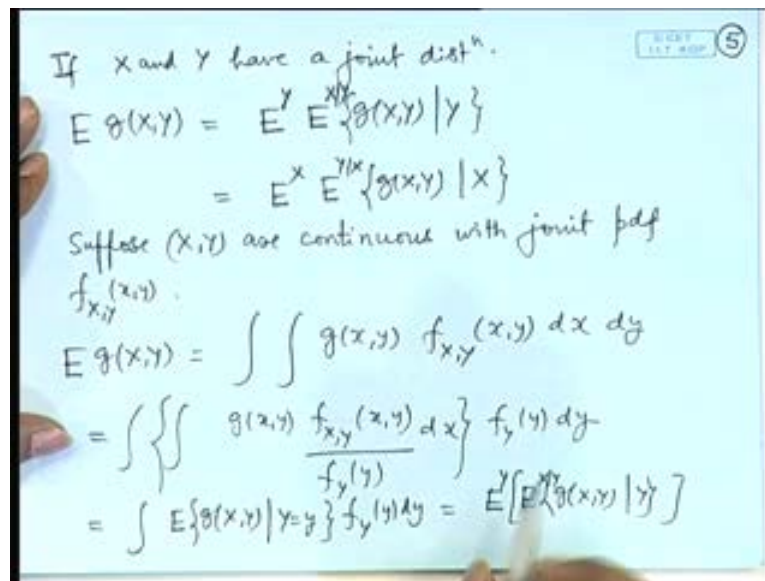 If X and Y have a joint distⁿ.
E g(X,Y) = E^Y E^{X|Y}{g(X,Y) | Y}
= E^X E^{Y|X}{g(X,Y) | X}
Suppose (X,Y) are continuous with joint pdf
f_{X,Y}(x,y).
E g(X,Y) = ∫ ∫ g(x,y) f_{X,Y}(x,y) dx dy
= ∫{∫ g(x,y) f_{X,Y}(x,y)/f_Y(y) dx} f_Y(y) dy
= ∫ E{g(X,Y) | Y=y} f_Y(y) dy = E^Y[E^{X|Y}{g(X,Y) | Y}]
5